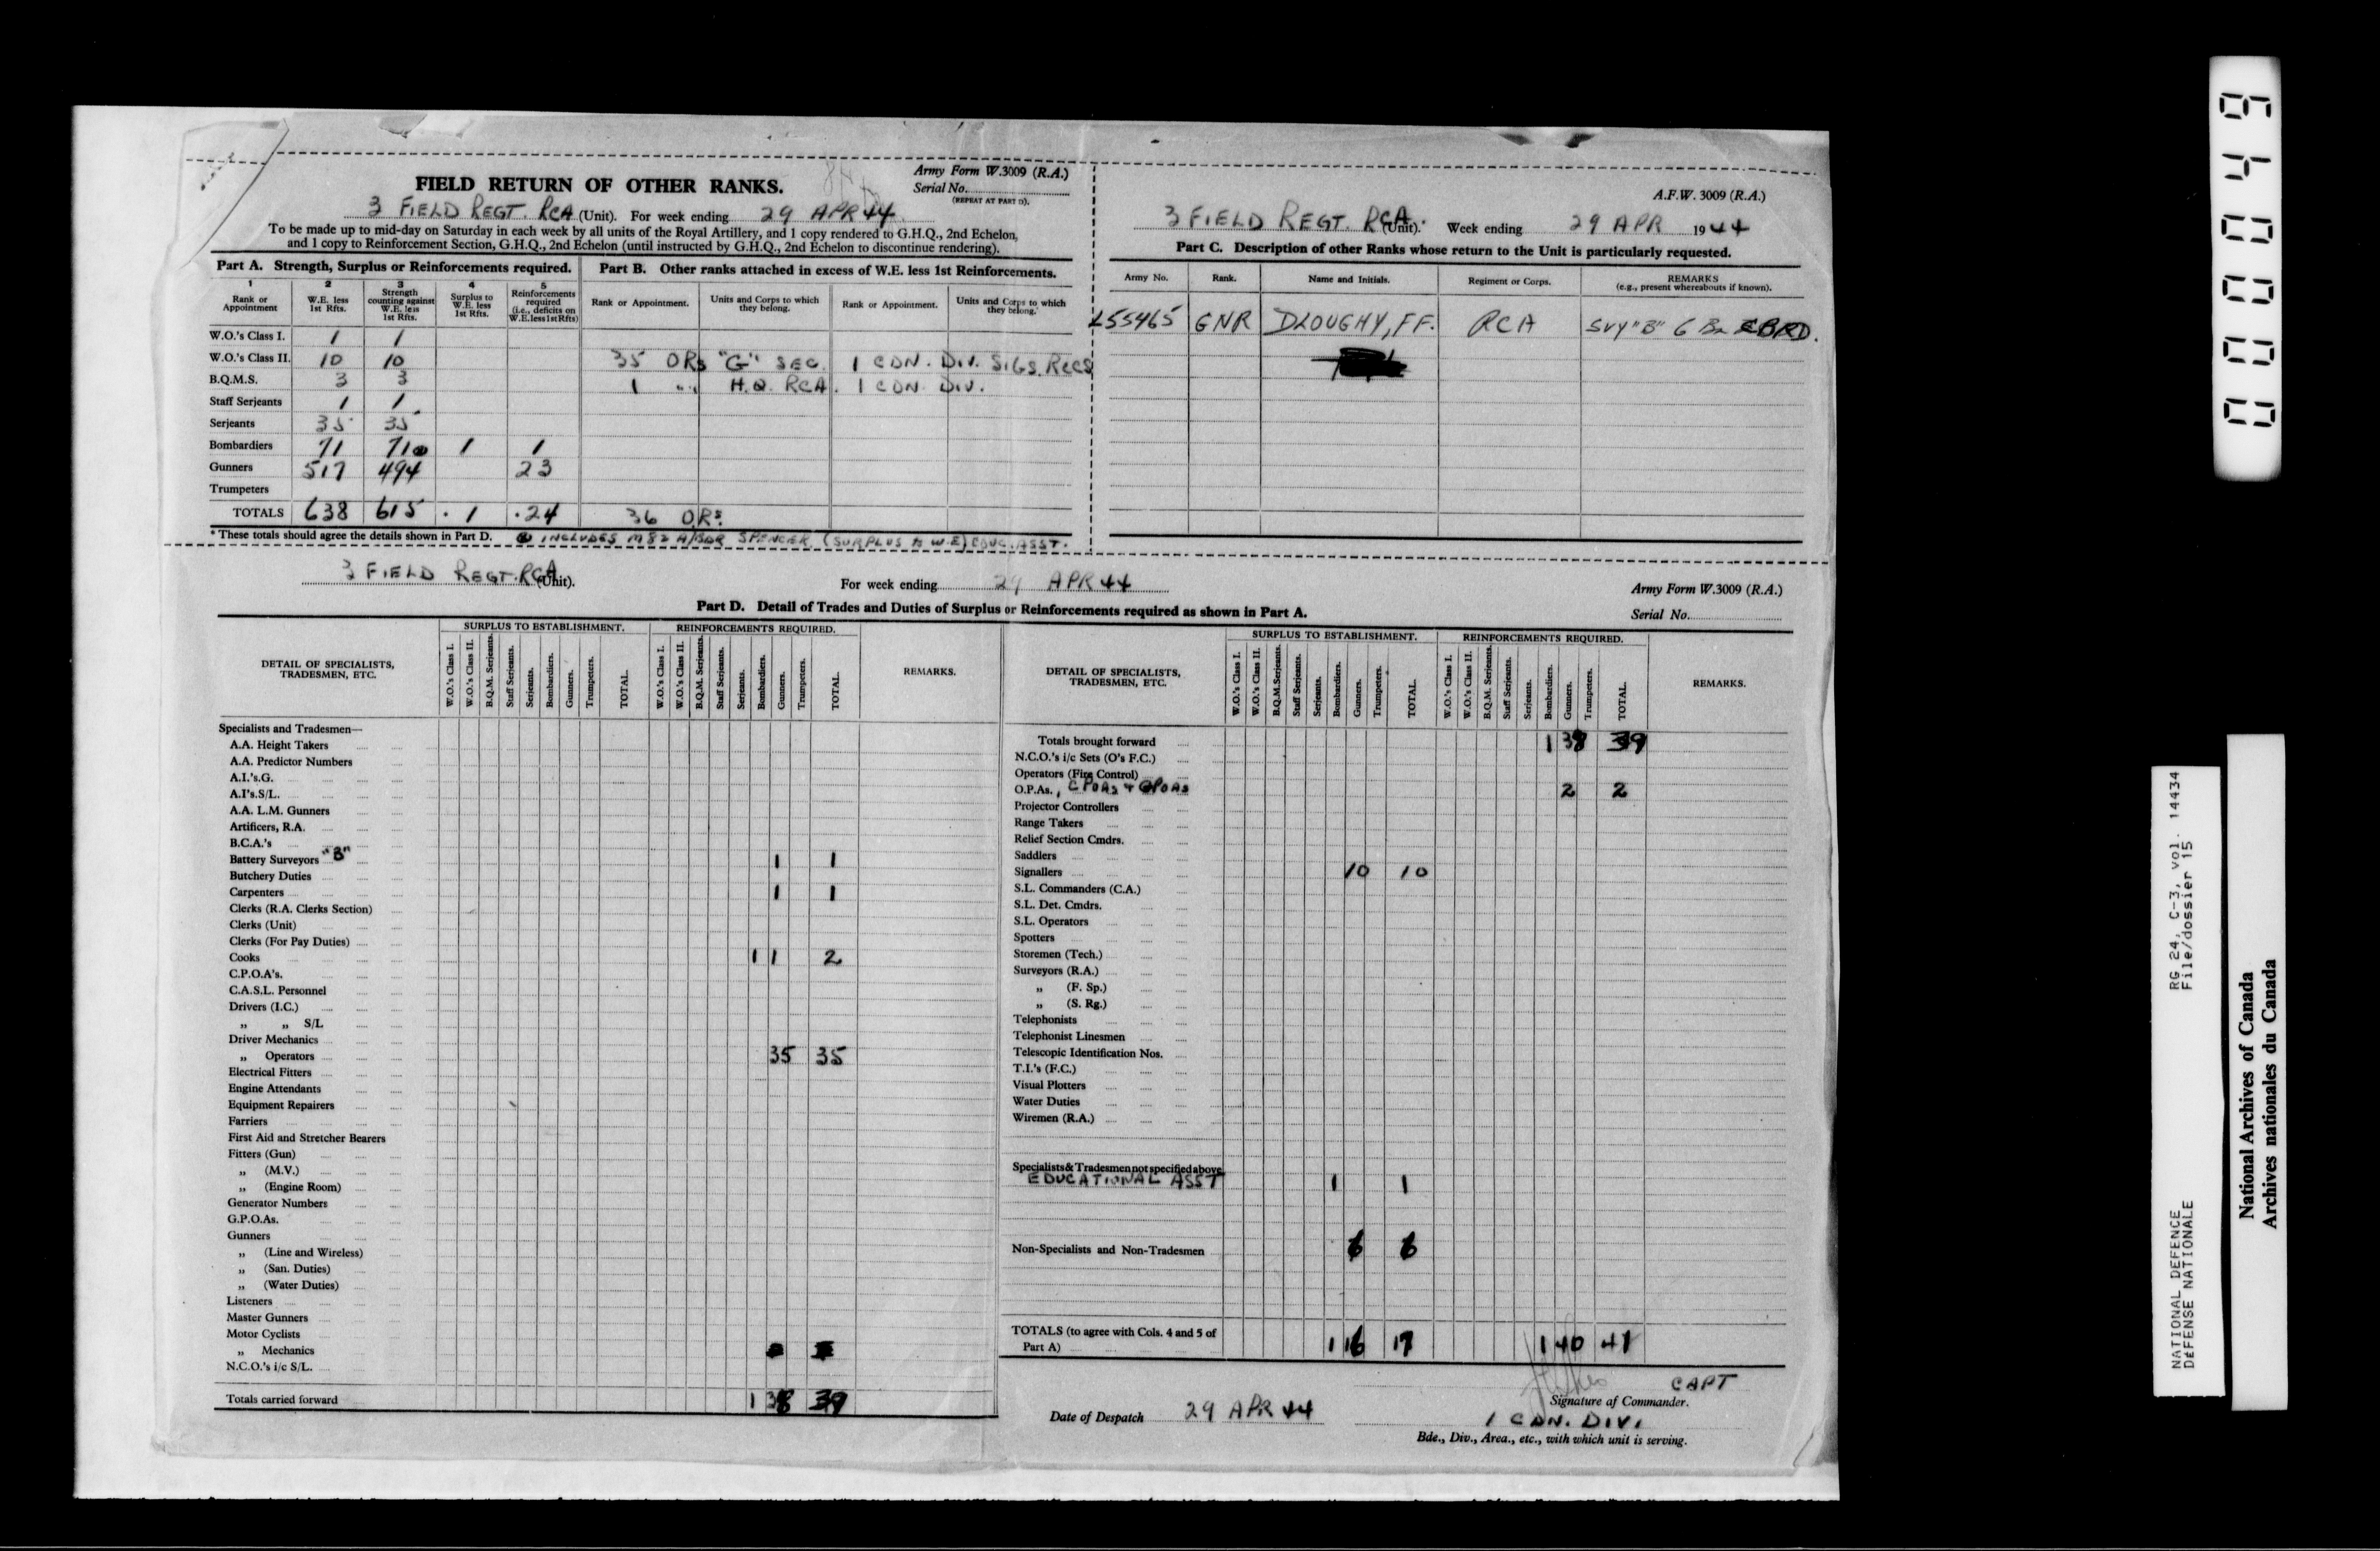 FIELD RETURN OF OTHER RANKS.
Army Form W.3009 (R.A.)
Serial No.
(REPEAT AT PART D).
3 FIELD REGT. RCA (Unit). For week ending 29 APR 44
To be made up to mid-day on Saturday in each week by all units of the Royal Artillery, and 1 copy rendered to G.H.Q., 2nd Echelon,
and 1 copy to Reinforcement Section, G.H.Q., 2nd Echelon (until instructed by G.H.Q., 2nd Echelon to discontinue rendering).
Part A. Strength, Surplus or Reinforcements required.
1 2 3 4 5
Rank or Appointment W.E. less 1st Rfts. Strength counting against W.E. less 1st Rfts. Surplus to W.E. less 1st Rfts. Reinforcements required (i.e., deficits on W.E. less 1st Rfts)
W.O.'s Class I. 1 1
W.O.'s Class II. 10 10
B.Q.M.S. 3 3
Staff Serjeants 1 1
Serjeants 35 35
Bombardiers 71 71 1 1
Gunners 517 494 23
Trumpeters
TOTALS 638 615 · 1 · 24
* These totals should agree the details shown in Part D.
INCLUDES M82 A/BDR SPENCER (SURPLUS to W.E) EDUC. ASST.
Part B. Other ranks attached in excess of W.E. less 1st Reinforcements.
Rank or Appointment. Units and Corps to which they belong. Rank or Appointment. Units and Corps to which they belong.
35 ORs "G" SEC. 1 CDN. DIV. SIGS. RCCS
1 " H.Q. RCA. 1 CDN. DIV.
36 ORs.
A.F.W. 3009 (R.A.)
3 FIELD REGT. RCA. (Unit). Week ending 29 APR 1944
Part C. Description of other Ranks whose return to the Unit is particularly requested.
Army No. Rank. Name and Initials. Regiment or Corps. REMARKS (e.g., present whereabouts if known).
L55465 GNR DLOUGHY, FF. RCA SVY "B" 6 Bn CBRD.
3 FIELD REGT. RCA (Unit).
For week ending 29 APR 44
Army Form W.3009 (R.A.)
Part D. Detail of Trades and Duties of Surplus or Reinforcements required as shown in Part A.
Serial No.
DETAIL OF SPECIALISTS, TRADESMEN, ETC.
SURPLUS TO ESTABLISHMENT.
W.O.'s Class I. W.O.'s Class II. B.Q.M. Serjeants. Staff Serjeants. Serjeants. Bombardiers. Gunners. Trumpeters. TOTAL.
REINFORCEMENTS REQUIRED.
W.O.'s Class I. W.O.'s Class II. B.Q.M. Serjeants. Staff Serjeants. Serjeants. Bombardiers. Gunners. Trumpeters. TOTAL.
REMARKS.
Specialists and Tradesmen—
A.A. Height Takers
A.A. Predictor Numbers
A.I.'s.G.
A.I's.S/L.
A.A. L.M. Gunners
Artificers, R.A.
B.C.A.'s
Battery Surveyors "B" 1 1
Butchery Duties
Carpenters 1 1
Clerks (R.A. Clerks Section)
Clerks (Unit)
Clerks (For Pay Duties)
Cooks 1 1 2
C.P.O.A's.
C.A.S.L. Personnel
Drivers (I.C.)
„ „ S/L
Driver Mechanics
„ Operators 35 35
Electrical Fitters
Engine Attendants
Equipment Repairers
Farriers
First Aid and Stretcher Bearers
Fitters (Gun)
„ (M.V.)
„ (Engine Room)
Generator Numbers
G.P.O.As.
Gunners
„ (Line and Wireless)
„ (San. Duties)
„ (Water Duties)
Listeners
Master Gunners
Motor Cyclists
„ Mechanics
N.C.O.'s i/c S/L.
Totals carried forward 1 38 39
DETAIL OF SPECIALISTS, TRADESMEN, ETC.
SURPLUS TO ESTABLISHMENT.
W.O.'s Class I. W.O.'s Class II. B.Q.M. Serjeants. Staff Serjeants. Serjeants. Bombardiers. Gunners. Trumpeters. TOTAL.
REINFORCEMENTS REQUIRED.
W.O.'s Class I. W.O.'s Class II. B.Q.M. Serjeants. Staff Serjeants. Serjeants. Bombardiers. Gunners. Trumpeters. TOTAL.
REMARKS.
Totals brought forward 1 38 39
N.C.O.'s i/c Sets (O's F.C.)
Operators (Fire Control)
O.P.As., CPOAs + GPOAs 2 2
Projector Controllers
Range Takers
Relief Section Cmdrs.
Saddlers
Signallers 10 10
S.L. Commanders (C.A.)
S.L. Det. Cmdrs.
S.L. Operators
Spotters
Storemen (Tech.)
Surveyors (R.A.)
„ (F. Sp.)
„ (S. Rg.)
Telephonists
Telephonist Linesmen
Telescopic Identification Nos.
T.I.'s (F.C.)
Visual Plotters
Water Duties
Wiremen (R.A.)
Specialists & Tradesmen not specified above
EDUCATIONAL ASST 1 1
Non-Specialists and Non-Tradesmen 6 6
TOTALS (to agree with Cols. 4 and 5 of
Part A) 1 16 17 1 40 41
CAPT
Signature af Commander.
Date of Despatch 29 APR 44
1 CDN. DIV.
Bde., Div., Area., etc., with which unit is serving.
00000449
RG 24, C-3, vol. 14434
File/dossier 15
NATIONAL DEFENCE
DÉFENSE NATIONALE
National Archives of Canada
Archives nationales du Canada